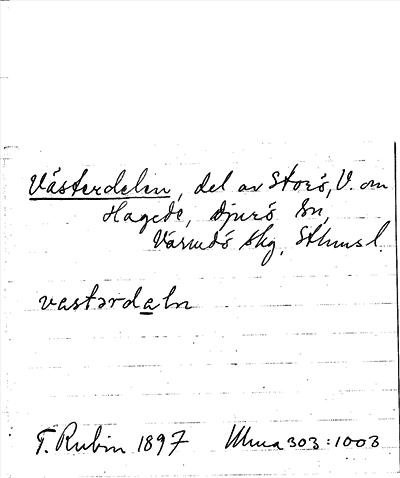 Västerdelen, del av Storö, V. om
Hagede, Djurö sn,
Värmdö skg. Sthmsl.
vastərdaln
T. Rubin 1897 Ulma 303:1003